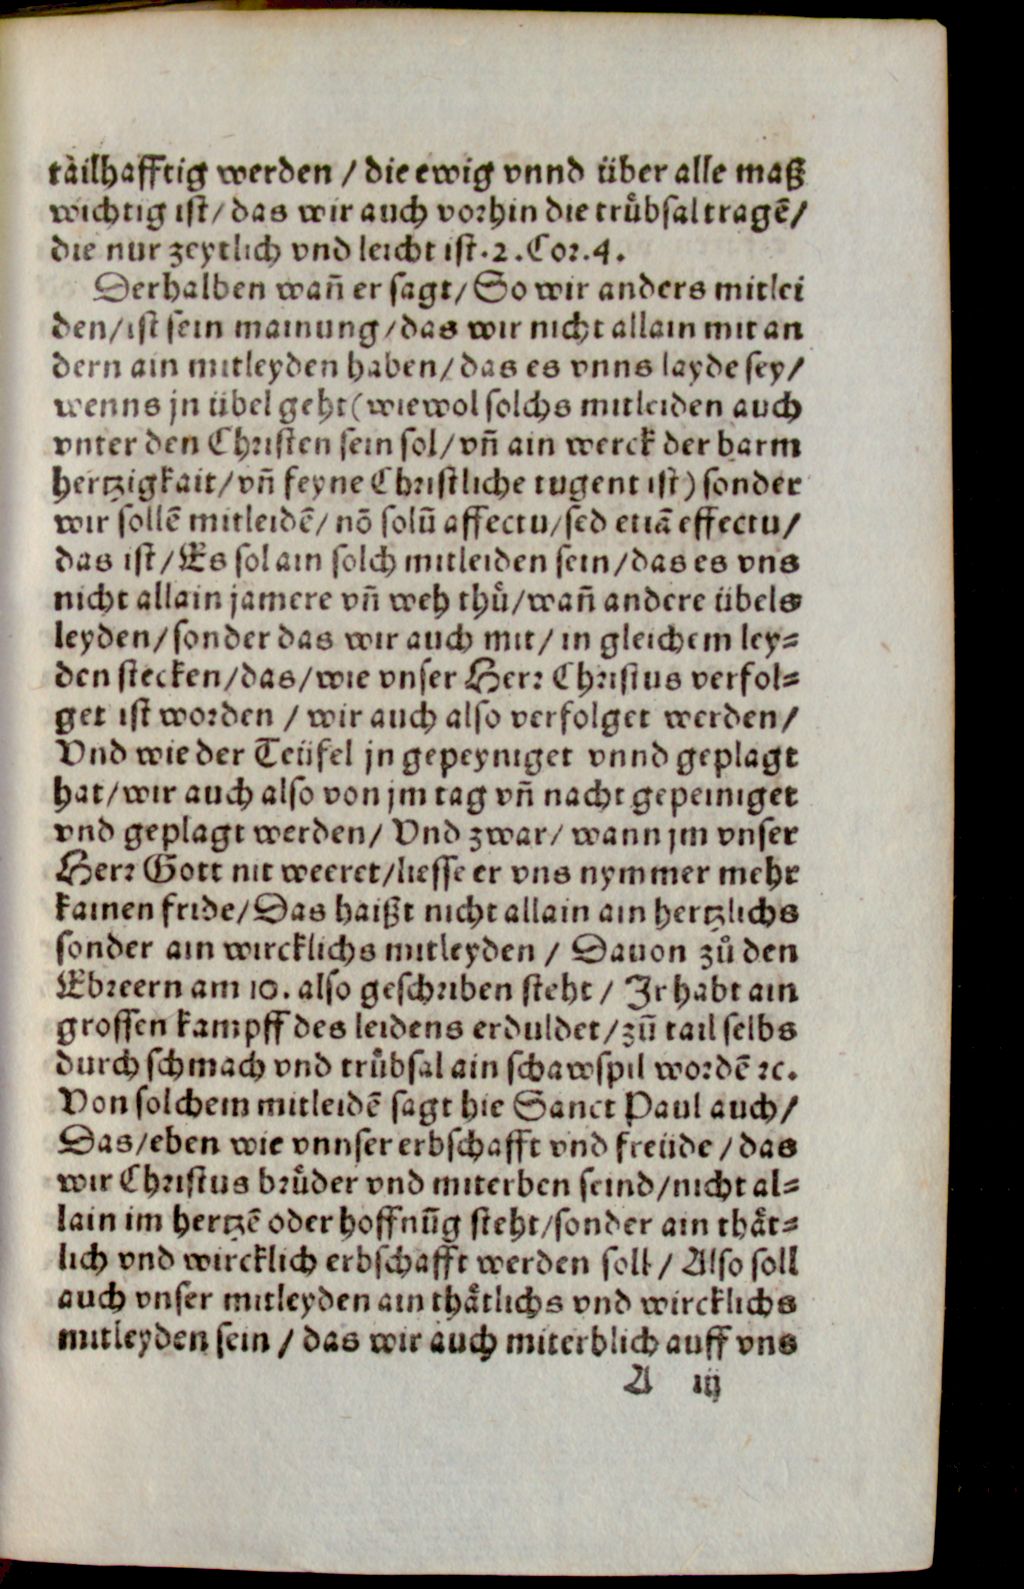 tailhafftig werden / die ewig vnnd über alle maß
wichtig ist / das wir auch vorhin die trůbsal tragē /
die nur zeytlich vnd leicht ist. 2. Cor. 4.
Derhalben wañ er sagt / So wir anders mitlei
den / ist sein mainung / das wir nicht allain mit an
dern ain mitleyden haben / das es vnns layde sey /
wenns jn übel geht ( wiewol solchs mitleiden auch
vnter den Christen sein sol / vñ ain werck der barm
hertzigkait / vñ feyne Christliche tugent ist ) sonder
wir sollē mitleidē / nō solū affectu / sed etiā effectu /
das ist / Es sol ain solch mitleiden sein / das es vns
nicht allain jamere vñ weh thů / wañ andere übels
leyden / sonder das wir auch mit / in gleichem ley⸗
den stecken / das / wie vnser Herr Christus verfol⸗
get ist worden / wir auch also verfolget werden /
Vnd wie der Teüfel jn gepeyniget vnnd geplagt
hat / wir auch also von jm tag vñ nacht gepeiniget
vnd geplagt werden / Vnd zwar / wann jm vnser
Herr Gott nit weeret / liesse er vns nymmer mehr
kainen fride / Das haißt nicht allain ain hertzlichs
sonder ain wircklichs mitleyden / Dauon zů den
Ebreern am 10. also geschriben steht / Jr habt ain
grossen kampff des leidens erduldet / zū tail selbs
durch schmach vnd trůbsal ain schawspil wordē ꝛc.
Von solchem mitleidē sagt hie Sanct Paul auch /
Das / eben wie vnnser erbschafft vnd freüde / das
wir Christus brůder vnd miterben seind / nicht al⸗
lain im hertzē oder hoffnūg steht / sonder ain thåt⸗
lich vnd wircklich erbschafft werden soll / Also soll
auch vnser mitleyden ain thåtlichs vnd wircklichs
mitleyden sein / das wir auch miterblich auff vns
A iij